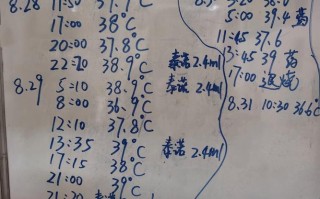 8.28 11:50 37.7°C
17:00 38°C
20:00 37.8°C
22:20 38.9°C 泰诺 2.4ml
8.29 5:10 38.9°C 泰诺 2.4ml
8:00 36.9°C
12:10 37.8°C
13:35 39°C 泰诺 2.4ml
17:15 38°C
21:00 39°C
5:00 39.4 药
11:45 37.6
13:45 39 药
17:00 退烧
8.31 10:30 36.6°C